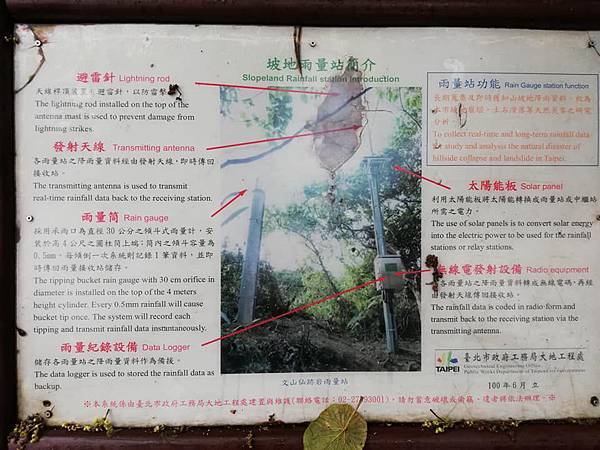 坡地雨量站簡介
Slopeland Rainfall station Introduction
避雷針 Lightning rod
天線桿頂裝置避雷針，以防雷擊
The lightning rod installed on the top of the
antenna mast is used to prevent damage from
lightning strikes.
發射天線 Transmitting antenna
各雨量站之降雨量資料經由發射天線，即時傳回
接收站。
The transmitting antenna is used to transmit
real-time rainfall data back to the receiving station.
雨量筒 Rain gauge
採用承雨口為直徑30公分之傾斗式雨量計，安
裝於高4公尺之圓柱筒上端；筒內之傾斗容量為
0.5mm，每傾倒一次系統則記錄1筆資料，並即
時傳回雨量接收站儲存。
The tipping bucket rain gauge with 30 cm orifice in
diameter is installed on the top of the 4 meters
height cylinder. Every 0.5mm rainfall will cause
bucket tip once. The system will record each
tipping and transmit rainfall data instantaneously.
雨量紀錄設備 Data Logger
儲存各雨量站之降雨量資料作為備援。
The data logger is used to stored the rainfall data as
backup.
雨量站功能 Rain Gauge station function
長期蒐集及即時獲知山坡地降雨資料，
分析。
To collect real-time and long-term rainfall data
for study and analysis the natural disaster of
hillside collapse and landslide in Taipei.
太陽能板 Solar panel
利用太陽能板將太陽能轉換成雨量站或中繼站
所需之電力。
The use of solar panels is to convert solar energy
into the electric power to be used for the rainfall
stations or relay stations.
無線電發射設備 Radio equipment
各雨量站之降雨量資料轉成無線電碼，再經
由發射天線傳回接收站。
The rainfall data is coded in radio form and
transmit back to the receiving station via the
transmitting antenna.
文山仙跡岩雨量站
TAIPEI
臺北市政府工務局大地工程處
Geotechnical Engineering Office,
Public Works Department of Taipei City Government
100年6月 立
※本系統係由臺北市政府工務局大地工程處建置與維護(聯絡電話:02-27 3001)，請勿蓄意破壞或偷竊，違者將依法辦理。※